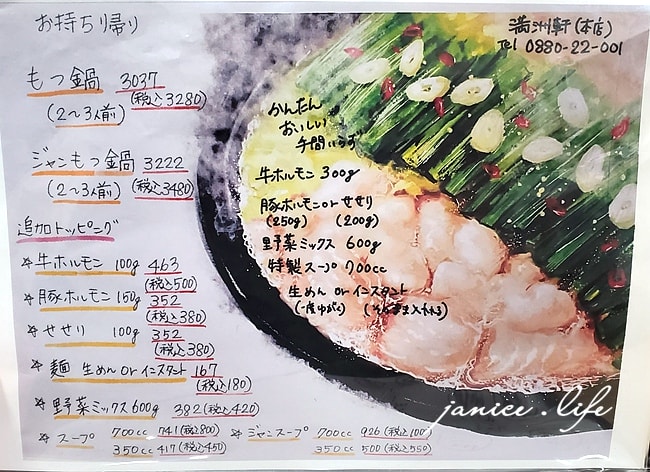 お持ち帰り
満洲軒(本店)
Tel 0880-22-001
もつ鍋 3037
(2〜3人前) (税込3280)
ジャンもつ鍋 3222
(2〜3人前) (税込3480)
追加トッピング
☆牛ホルモン 100g 463
(税込500)
☆豚ホルモン 150g 352
(税込380)
☆せせり 100g 352
(税込380)
☆麺 生めんorインスタント 167
(税込180)
☆野菜ミックス600g 382(税込420)
☆スープ 700cc 741(税込800)
350cc 417(税込450)
☆ジャンスープ 700cc 926(税込100
350cc 500(税込550)
かんたん
おいしい
手間いらず
牛ホルモン 300g
豚ホルモンorせせり
(250g) (200g)
野菜ミックス 600g
特製スープ 700cc
生めん orインスタント
(一度ゆがく) (そのまま入れる)
janice.life